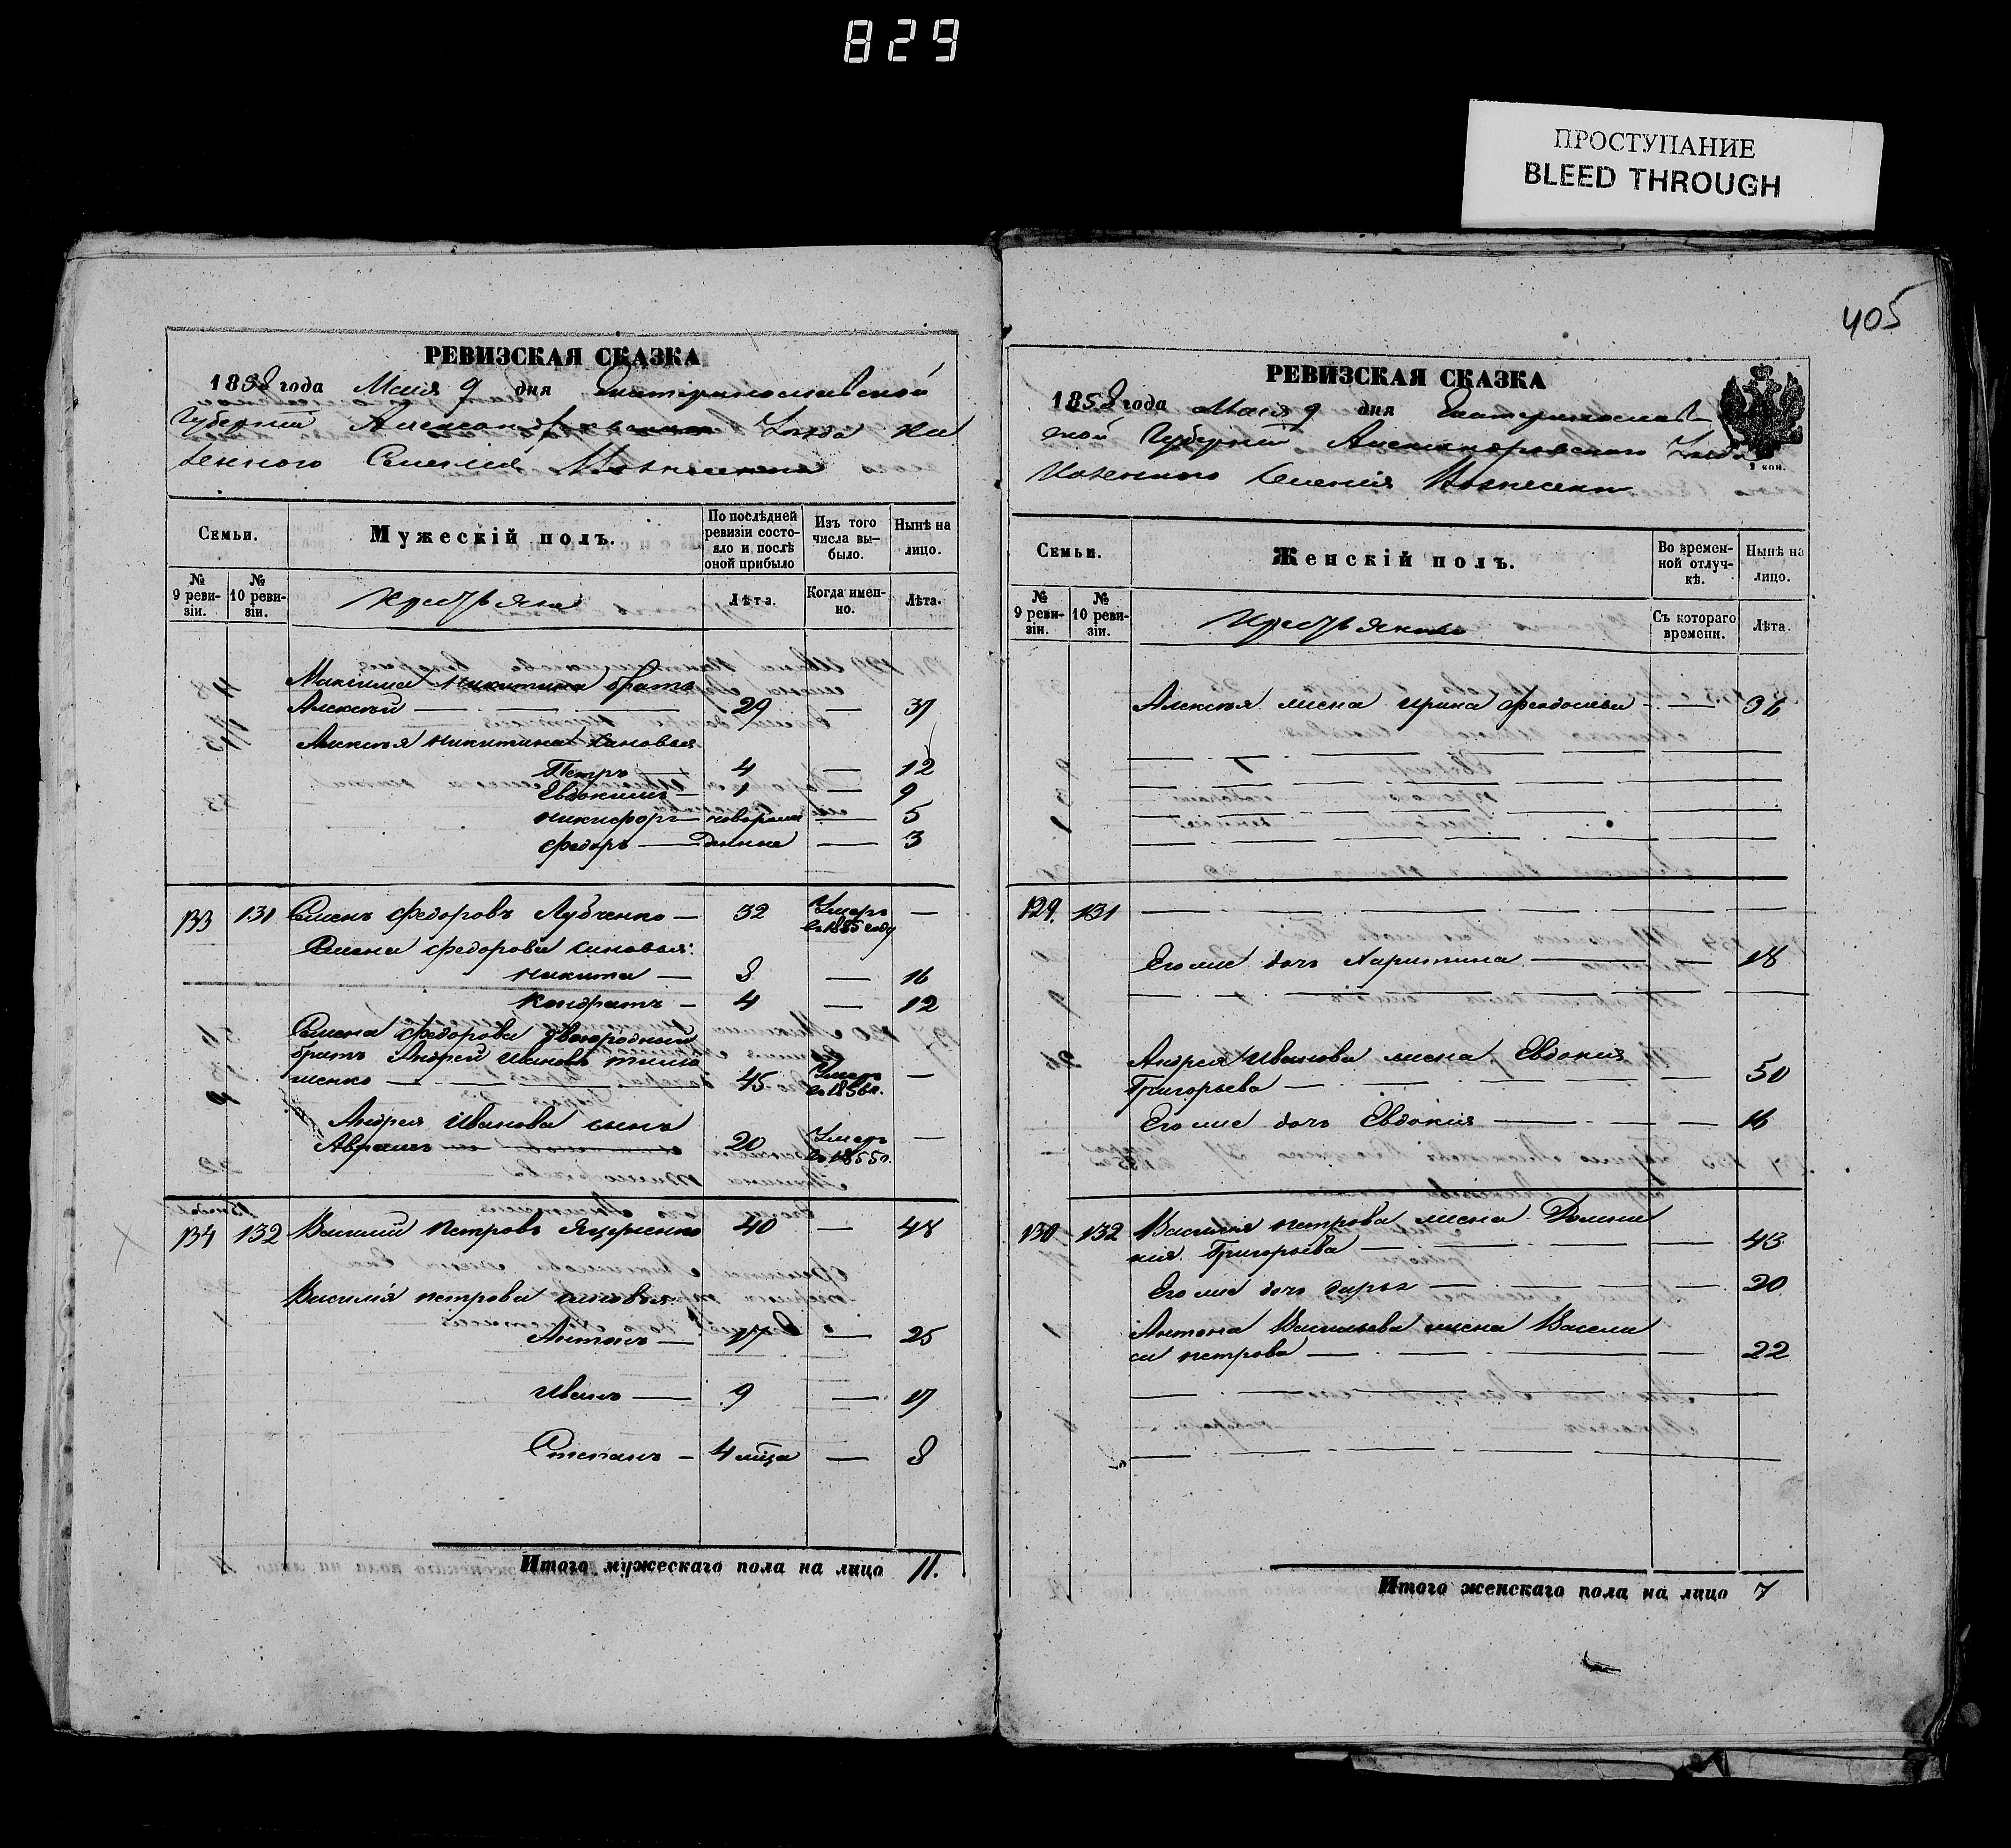 829
ПРОСТУПАНИЕ
BLEED THROUGH
405
РЕВИЗСКАЯ СКАЗКА
1858 года Мая 9 дня Екатеринославской
Губернiи Александровского Уезда Ка
зенного Селенiя Вознесенки
Семьи.
Мужескiй полъ.
По послѣдней ревизiи состо-
яло и послѣ оной прибыло
Изъ того числа вы-
было.
Нынѣ на лицо.
№ 9 реви-
зiи.
№ 10 реви-
зiи.
Крестьяне
Лѣта.
Когда имен-
но.
Лѣта.
Максима Никитина братъ
Алексей 29 — 37
Алексея Никитина сыновья
Петръ — 4 — 12
Евдокимъ — 1 — 9
Никифоръ — новорож — 5
Федоръ — денные — 3
133 131 Семенъ Федоровъ Лубченко — 32 Умеръ въ 1855 году —
Семена Федорова сыновья:
Никита — 8 — 16
Кондратъ — 4 — 12
Семена Федорова двоюродный
братъ Андрей Ивановъ Тимо
шенко — 45 Умеръ въ 1856 г. —
Андрея Иванова сынъ
Аврамъ 20 Умеръ въ 1855 г. —
134 132 Василий Петровъ Яценко 40 — 48
Василия Петрова сыновья:
Антонъ — 17 — 25
Иванъ — 9 — 17
Степанъ — 4 м‑ца — 8
Итого мужескаго пола на лицо 11.
РЕВИЗСКАЯ СКАЗКА
1858 года Мая 9 дня Екатеринослав
ской Губернiи Александровского Уезда
Казенного Селенiя Вознесенки
2 коп.
Семьи.
Женскiй полъ.
Во времен-
ной отлуч-
кѣ.
Нынѣ на лицо.
№ 9 реви-
зiи.
№ 10 реви-
зiи.
Крестьянки
Съ котораго времени.
Лѣта.
Алексея жена Ирина Феодосиева — 36
129. 131
Его же дочь Харитина — 18
Андрея Иванова жена Евдокия
Григорьева — 50
Его же дочь Евдокия — 16
130 132 Василия Петрова жена Домни
кия Григорьева — 43
Его же дочь Дарья — 20
Антона Васильева жена Васели
са Петрова — 22
Итого женскаго пола на лицо 7